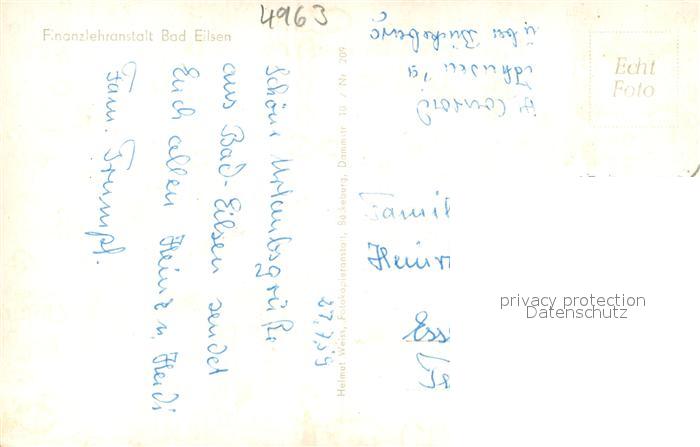 4963
Finanzlehranstalt Bad Eilsen
Echt
Foto
über Bückeburg
27.7.59
Schöne Urlaubsgrüße
aus Bad-Eilsen sendet
Euch allen Heinz u. Heidi
Fam. Trumpf.
Helmut Weiss, Fotokopieranstalt, Bückeburg, Dammstr. 10 / Nr. 209
Famil
Heinr
Ess
privacy protection
Datenschutz